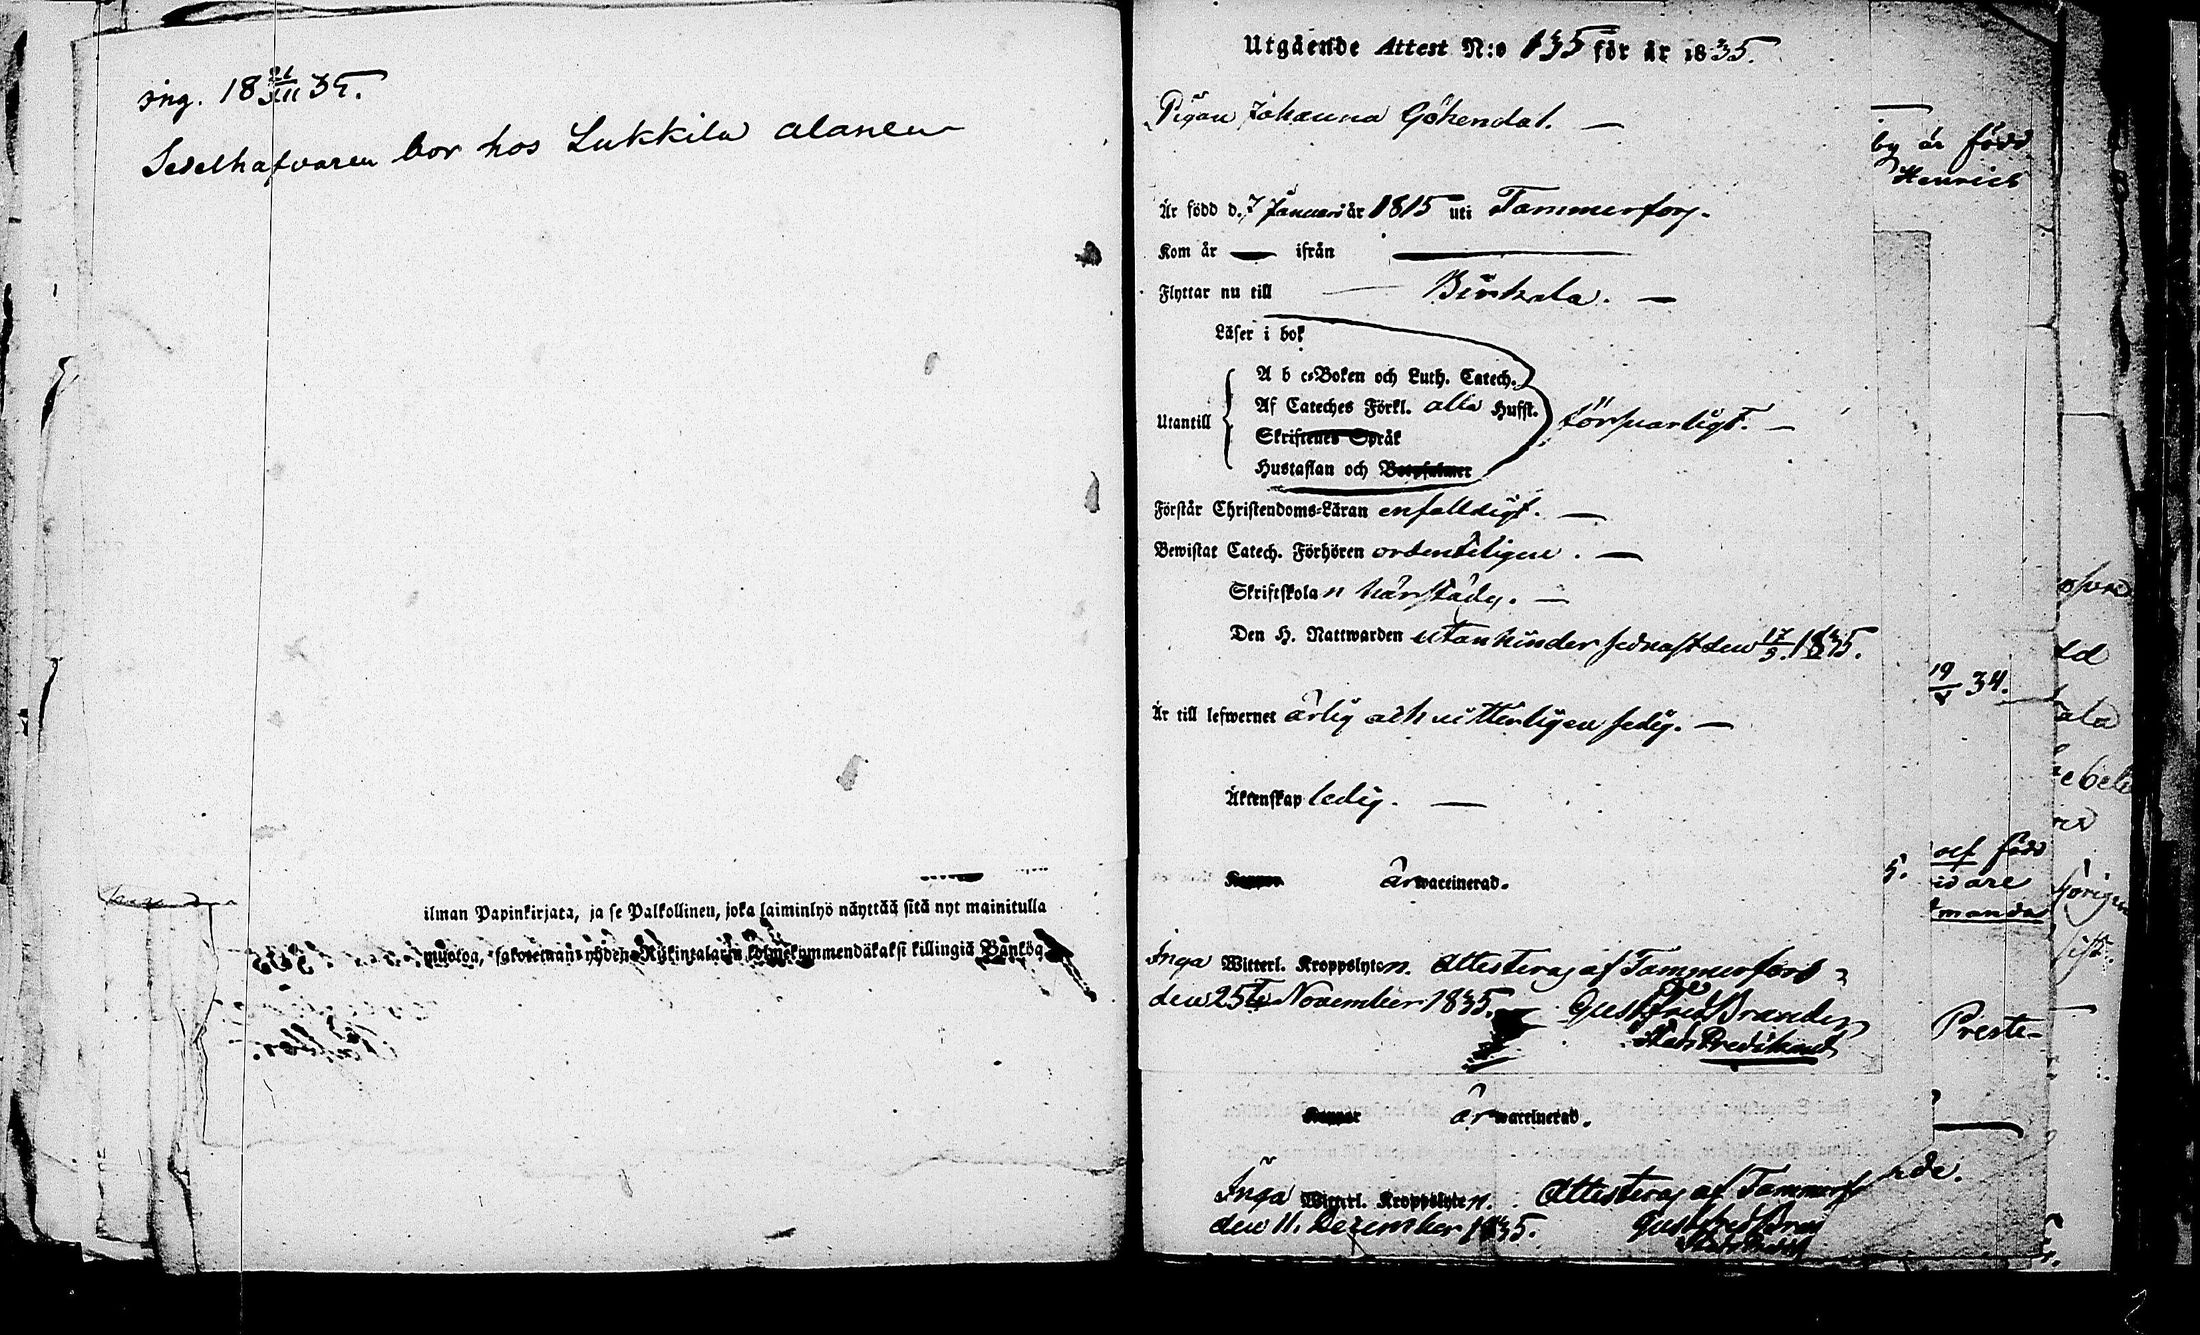 ing. 18 21/XII 35.
Sedelhafvaren bor hos Lukkila alanen
ilman Papinkirjata, ja se Palkollinen, joka laiminlyö näyttää sitä nyt mainitulla
muotoa, sakotetaan yhden Riikintalarin kolmekymmendäkaksi killingiä Bankög
Utgående Attest N:o 135 för år 1835.
Pigan Johanna Gökendal. —
Är född d. 7 Januari år 1815 uti Tammerfors.
Kom år — ifrån —
Flyttar nu till Birkala. —
Läser i bok
A b c-Boken och Luth. Catech.
Utantill Af Cateches Förkl. alla Hufst. försvarligt. —
Skriftenes Språk
Hustaflan och Botpsalmer
Förstår Christendoms-Läran enfalldigt. —
Bewistat Catech. Förhören ordenteligen. —
Skriftskolan härstädes. —
Den H. Nattwarden utan hinder sednast den 17/5 1835.
Är till lefwernet ärlig och vitterligen sedig. —
Äktenskap ledig. —
Koppor är waccinerad.
Inga Witterl. Kroppslyten. Attesteras af Tammerfors
den 25te November 1835. Gust. Fred. Brander
Stads Predikant
Koppor är waccinerad.
Inga Witterl. Kroppslyten. Attesteras af Tammerf
den 11. December 1835. Gust Fred Bran
by är född
Henrics
19/V 34.
5.
född
idare
mandas
Preste-
rde.